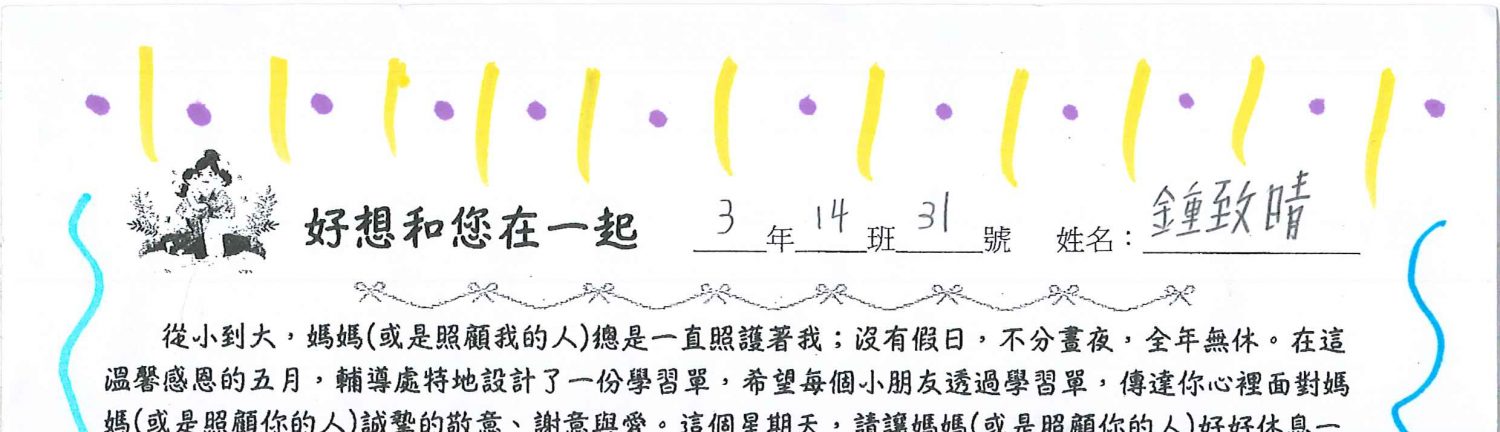 好想和您在一起 3年14班31號 姓名：鐘致晴
從小到大，媽媽(或是照顧我的人)總是一直照護著我；沒有假日，不分晝夜，全年無休。在這
溫馨感恩的五月，輔導處特地設計了一份學習單，希望每個小朋友透過學習單，傳達你心裡面對媽
媽(或是照顧你的人)誠摯的敬意、謝意與愛。這個星期天，請讓媽媽(或是照顧你的人)好好休息一